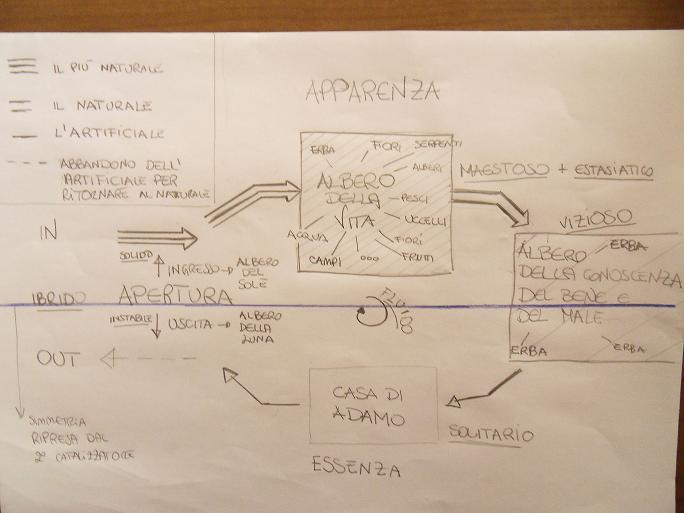 IL PIÙ NATURALE
IL NATURALE
L'ARTIFICIALE
ABBANDONO DELL'
ARTIFICIALE PER
RITORNARE AL NATURALE
APPARENZA
ERBA
FIORI
SERPENTI
ALBERI
ALBERO
DELLA
VITA
PESCI
UCCELLI
FIORI
FRUTTI
ACQUA
CAMPI
ooo
MAESTOSO + ESTASIATICO
VIZIOSO
ALBERO
ERBA
DELLA CONOSCENZA
DEL BENE E
DEL MALE
ERBA
ERBA
IN
SOLIDO
INGRESSO → ALBERO
DEL
SOLE
IBRIDO
APERTURA
INSTABILE
USCITA → ALBERO
DELLA
LUNA
OUT
CASA DI
ADAMO
SOLITARIO
ESSENZA
SIMMETRIA
RIPRESA DAL
2° CATALIZZATORE